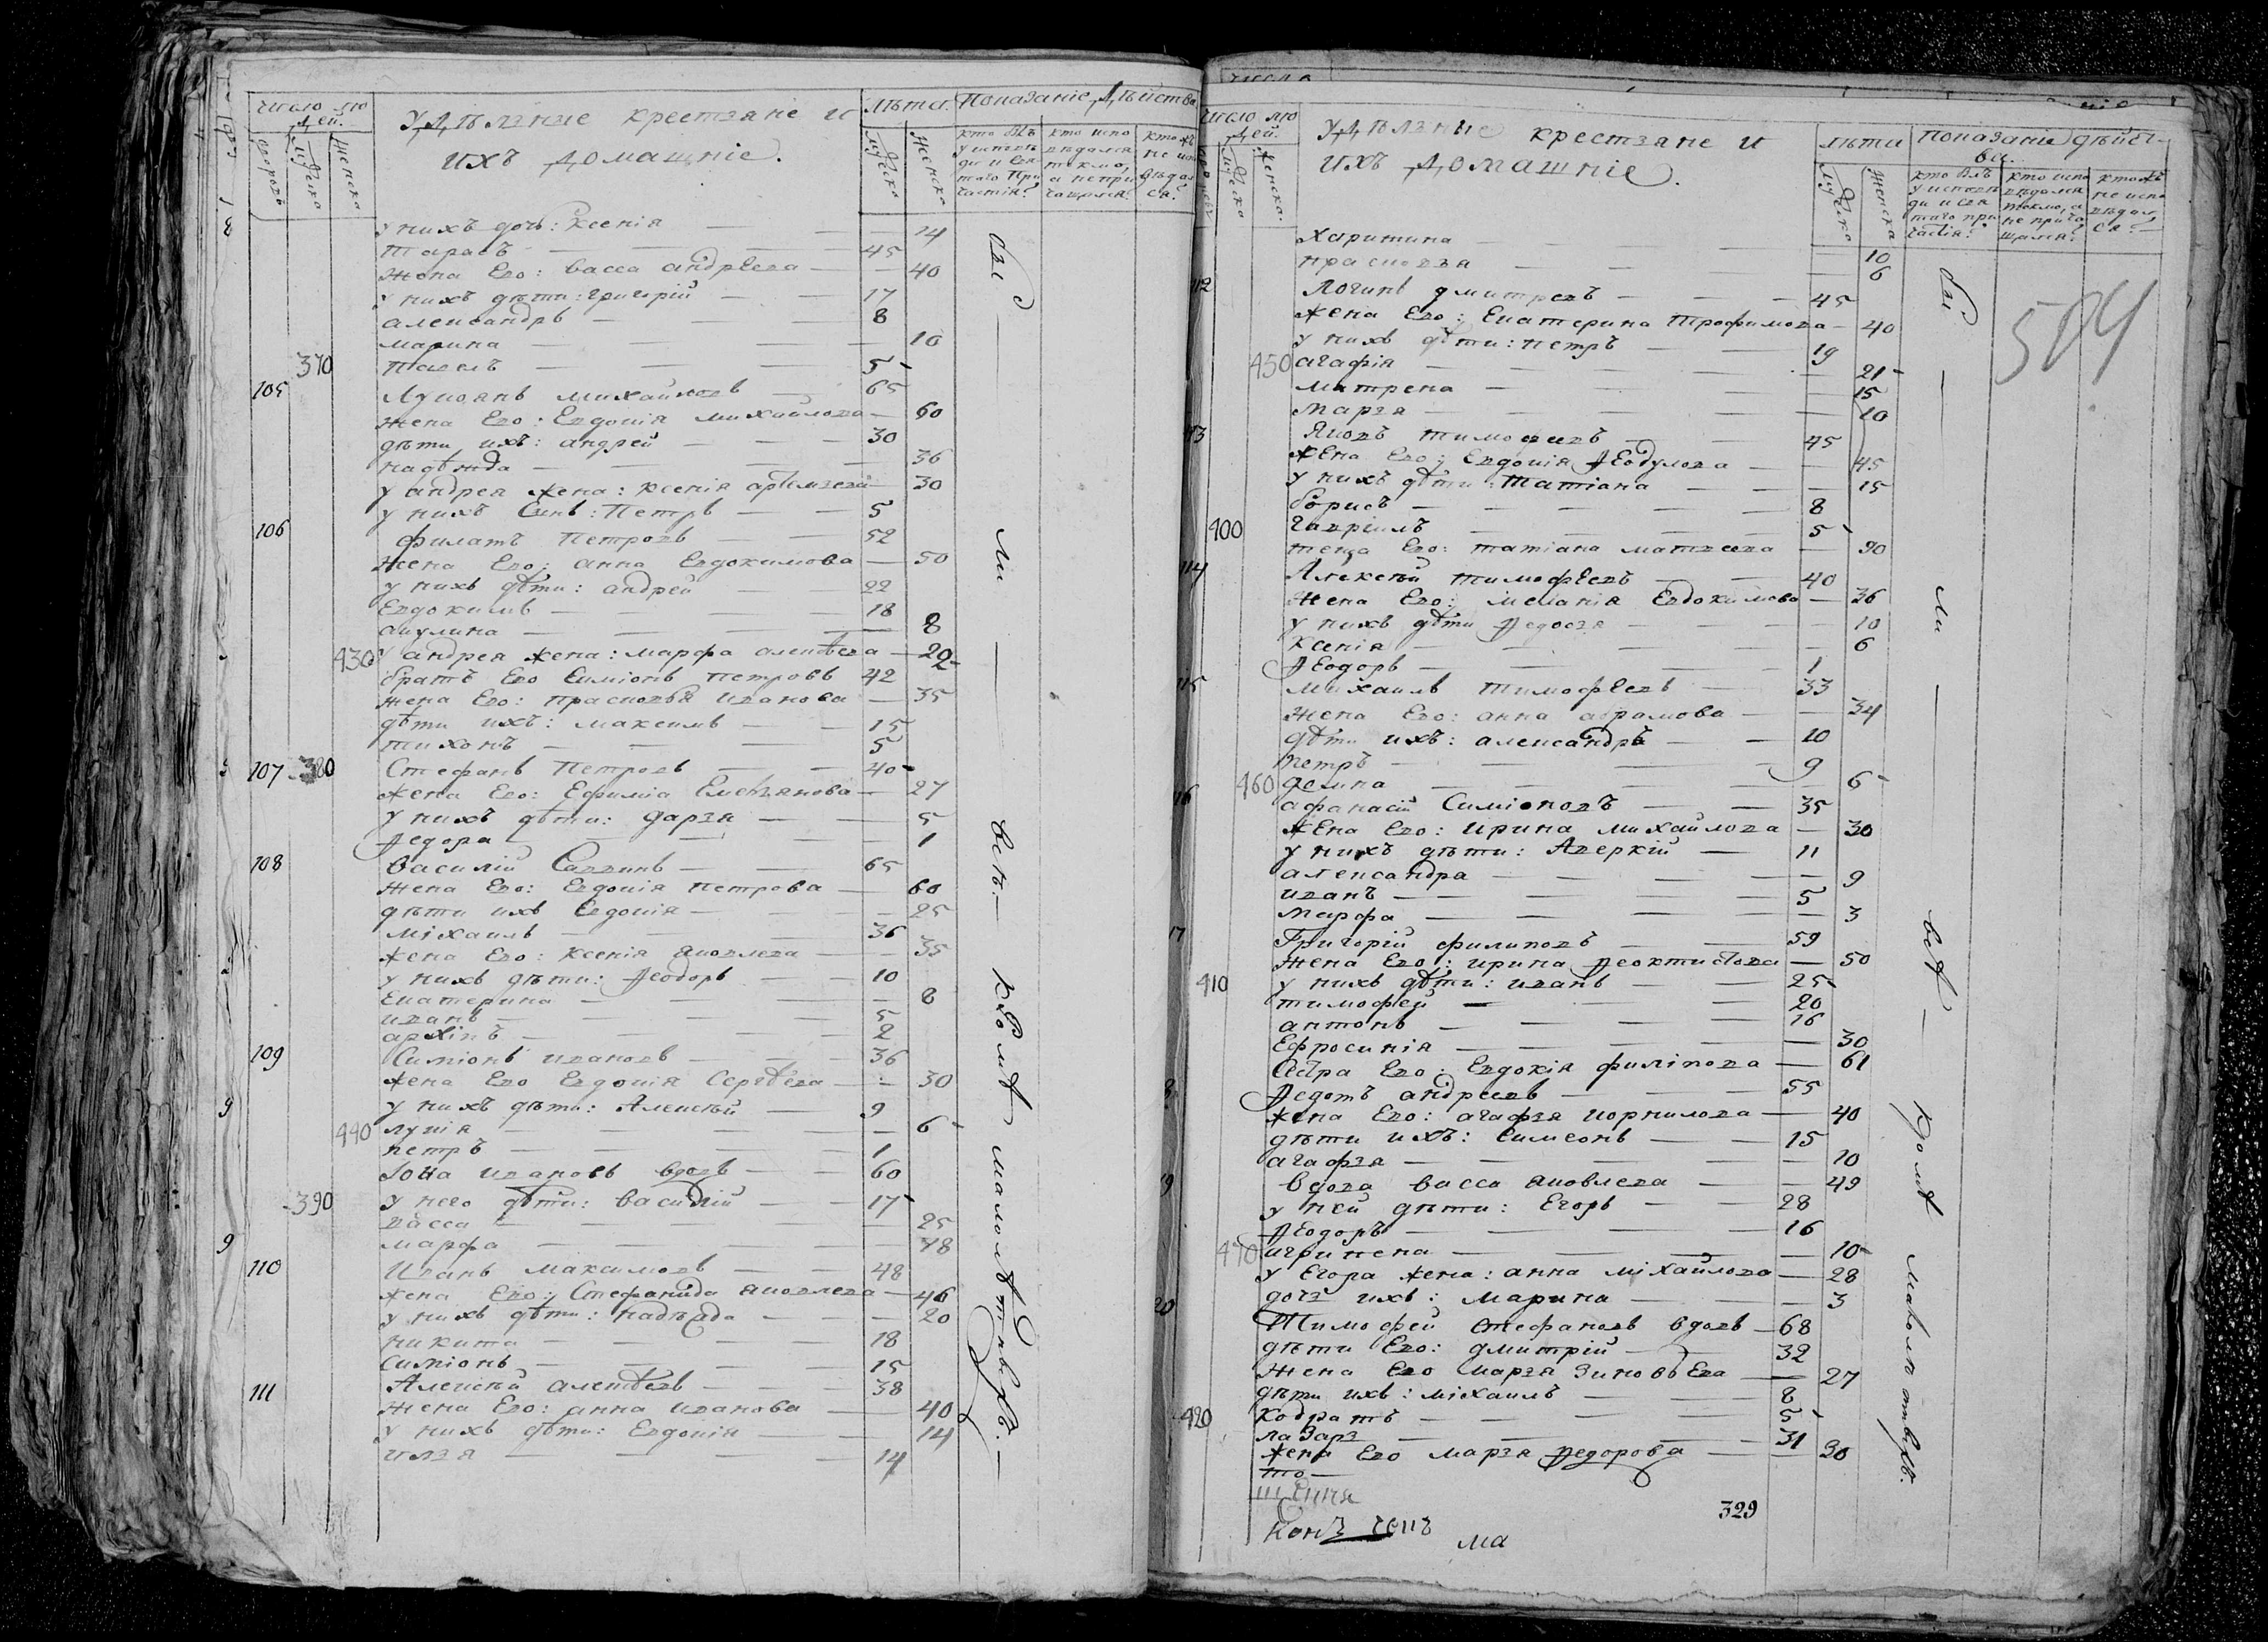 число лю
дей.
дворовъ
мужеска
женска
Удѣлзные крестзяне и
ихъ домашніе.
лѣта.
мужеска
женска
Показаніе дѣйства
кто былъ у исповѣди и святаго причастія?
кто исповѣдался токмо, а не причащался?
у нихъ дочь: Ксенія — 14
Тарасъ — 45
жена Его: васса андрѣева — 40
у нихъ дѣти: григорій — 17
александръ — 8
марина — 10
370 павелъ — 5
105 Лукоянъ михайловъ 65
жена Его: Евдокія михайлова — 60
дѣти ихъ: андрей — 30
надѣжда — 36
у андрея жена: ксенія 30
у нихъ Сынъ: Петръ — 5
106 филатъ Петровъ — 52
жена Его: анна Евдокимова — 50
у нихъ дѣти: андрей — 22
Евдокимъ — 18
акулина — 8
430 у андрея жена: марфа алексѣева — 20
братъ Его Симіонъ петровъ 42
жена Его: прасковья иванова — 35
дѣти ихъ: максимъ — 15
тихонъ — 5
107 380 Стефанъ Петровъ — 40
жена Его: Ефиміа Емельянова — 27
у нихъ дѣти: дарзя — 5
Ѳедора — 1
108 Василій Саввинъ — 65
жена Его: Евдокія петрова — 60
дѣти ихъ Евдокія — 25
міхаилъ — 36
жена Его: ксенія яковлева — 35
у нихъ дѣти: Ѳеодоръ — 10
Екатерина — 8
иванъ — 5
архіпъ — 2
109 Симіонъ ивановъ — 36
жена Его Евдокія Сергѣева — 30
у нихъ дѣти: Алексѣй — 9
440 лукія — 6
петръ — 1
Іона ивановъ вдовъ — 60
390 у него дѣти: василій — 17
васса — 25
марфа — 18
110 Иванъ максимовъ — 48
жена Его: Стефанида яковлева — 46
у нихъ дѣти: надѣжда — 20
никита — 18
Симіонъ — 15
111 Алексѣй алексѣевъ — 38
жена Его: анна иванова — 40
у нихъ дѣти: Евдокія — 14
илзя — 14
бы — ли — всѣ. — кромѣ малолѣтнвхъ. —
число лю
дей.
мужеска
женска.
Удѣлзные крестзяне и
ихъ домашніе.
лѣта
мужеска
женска
показаніе дѣйст-
ва.
кто былъ у исповѣди и святаго причастія?
кто исповѣдался токмо, а не причащался?
584
Харитина — 10
прасковзя — 6
112 Логинъ дмитревъ — 45
жена Его: Екатерина Трофимова — 40
у нихъ дѣти: петръ — 19
450 агафія — 21
матрена — 15
Марзя — 10
113 Яковъ тимофеевъ — 45
жена Его: Евдокія Ѳеодулова — 45
у нихъ дѣти: татіана — 15
борисъ — 8
400 гавріилъ — 5
теща Его: татіана матвеева — 90
114 Алексѣй тимофѣевъ — 40
жена Его: меланія Евдокимова — 36
у нихъ дѣти Ѳедосзя — 10
ксенія — 6
Ѳеодоръ — 1
115 михаилъ тимофѣевъ — 33
жена Его: анна абрамова — 34
дѣти ихъ: александръ — 10
петръ — 9
460 Ѳекла — 6
116 афанасій Симіоновъ — 35
жена Его: ирина михайлова — 30
у нихъ дѣти: Аверкій — 11
александра — 9
иванъ — 5
Марфа — 3
117 Григорій филиповъ — 59
жена Его: ирина Ѳеоктистова — 50
410 у нихъ дѣти: иванъ — 25
тимофей — 20
антонъ — 16
Ефросинія — 30
Сестра Его: Евдокія филіпова — 61
Ѳедотъ андреевъ — 55
жена Его: агафзя корнилова — 40
дѣти ихъ: симеонъ — 15
агафзя — 10
вдова васса яковлева — 49
у ней дѣти: Егоръ — 28
Ѳеодоръ — 16
470 агрипена — 10
у Егора жена: анна міхайлова — 28
дочз ихъ: Марина — 3
Тимофей стефановъ вдовъ — 68
дѣти Его: дмитрій — 32
жена Его марзя зиновьева — 27
дѣти ихъ: міхаилъ — 8
420 Кодратъ — 5
лазарз — 31
жена Его марзя Ѳедорова — 30
329
ма
бы — ли — всѣ — кромѣ малолѣтнвхъ.